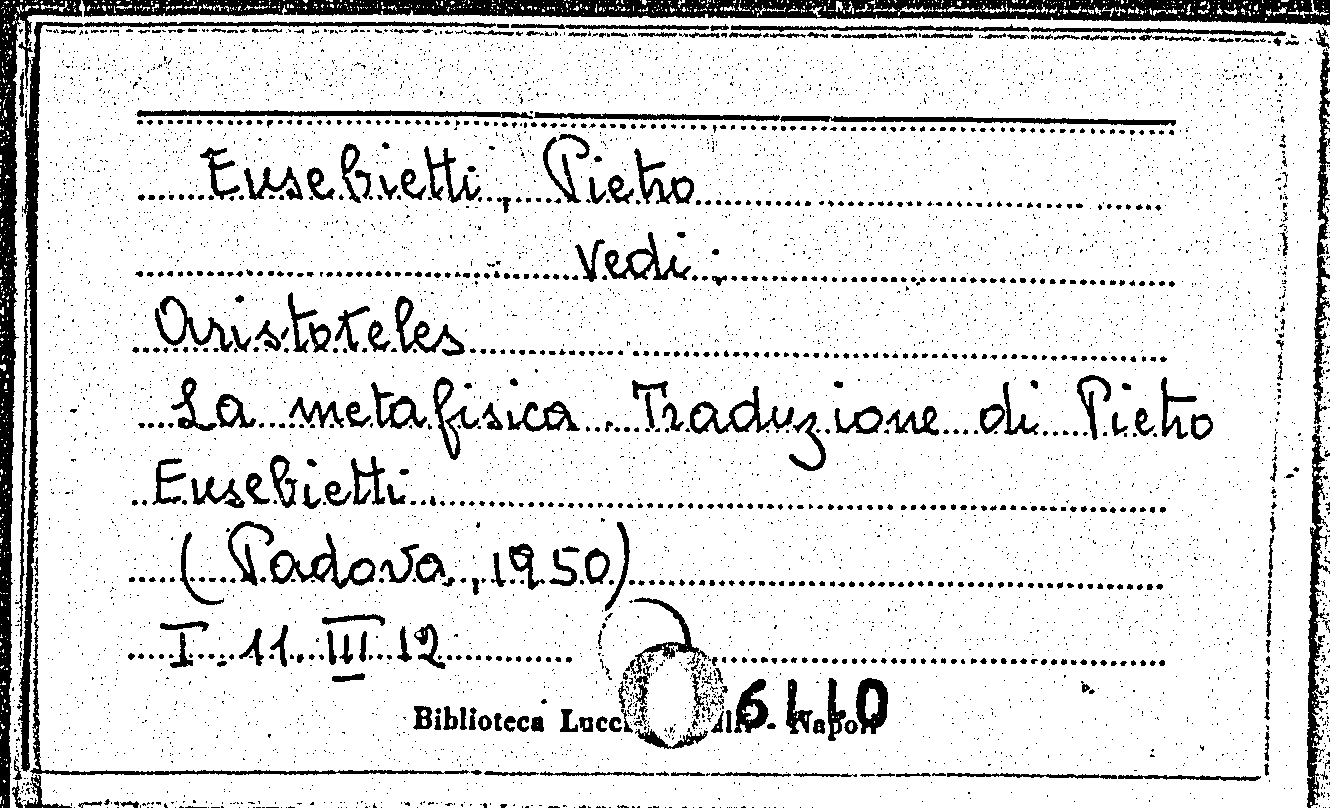 Eusebietti, Pietro
vedi:
Aristoteles
La metafisica. Traduzione di Pietro
Eusebietti.
(Padova, 1950)
I. 11. III 12
6110
Biblioteca - Napoli